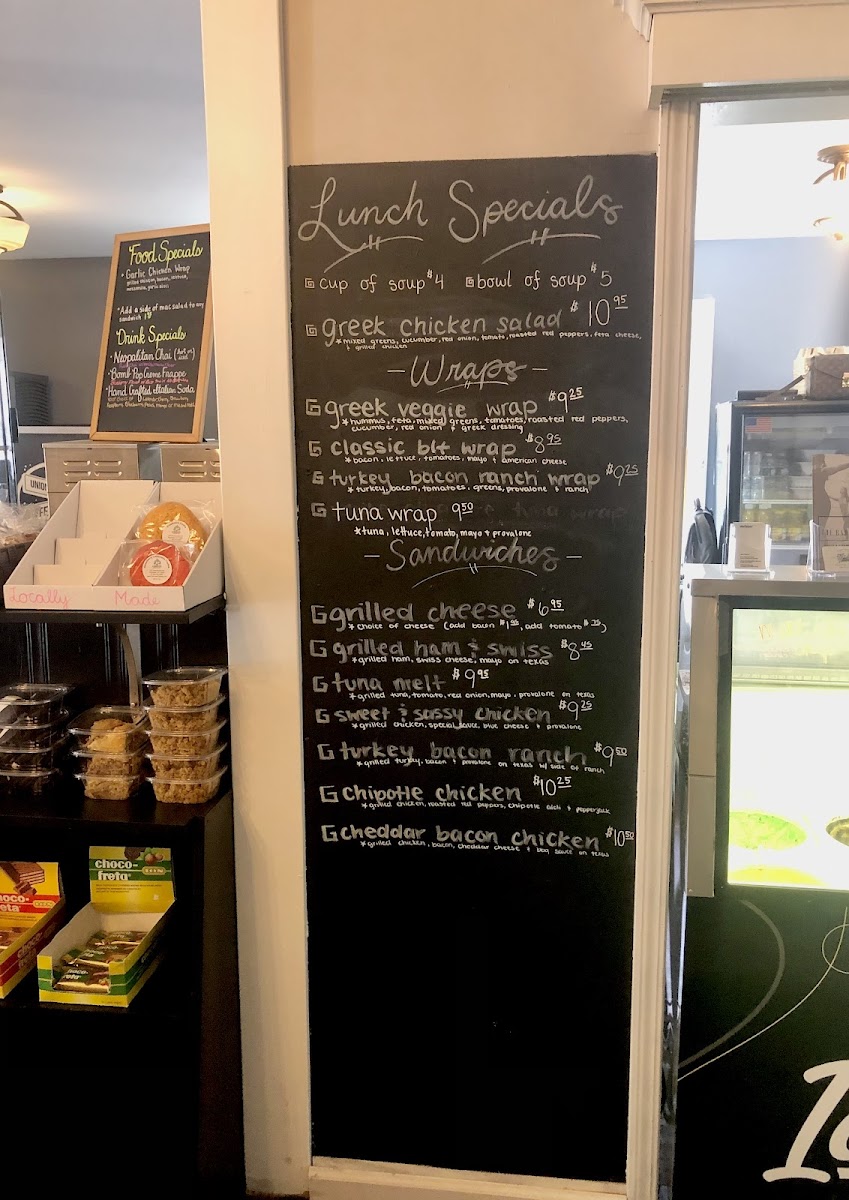 Lunch Specials
cup of soup $4 bowl of soup $5
greek chicken salad $10.95
* mixed greens, cucumber, red onion, tomato, roasted red peppers, feta cheese,
+ grilled chicken
- Wraps -
greek veggie wrap $9.25
* hummus, feta, mixed greens, tomatoes, roasted red peppers,
cucumber, red onion + greek dressing
classic blt wrap $8.95
* bacon, lettuce, tomatoes, mayo + american cheese
turkey bacon ranch wrap $9.25
* turkey, bacon, tomatoes, greens, provalone + ranch
tuna wrap 9.50
* tuna, lettuce, tomato, mayo + provalone
- Sandwiches -
grilled cheese $6.95
* choice of cheese (add bacon
add tomato
grilled ham & swiss $8.45
* grilled ham, swiss cheese, mayo on texas
tuna melt $9.95
* grilled tuna, tomato, red onion, mayo, provalone on texas
sweet & sassy chicken $9.25
* grilled chicken, special sauce, blue cheese + provalone
turkey bacon ranch $9.50
* grilled turkey, bacon + provalone on texas w/ side of ranch
chipotle chicken $10.25
* grilled chicken, roasted red peppers, chipotle aioli + pepperjack
cheddar bacon chicken $10.50
* grilled chicken, bacon, cheddar cheese + bbq sauce on texas
Food Specials
Garlic Chicken Wrap
Add a side of mac salad to any
sandwich
Drink Specials
Neopalitan Chai
Bomb Pop Creme Frappe
Hand Crafted Italian Soda
Locally Made
UNION
choco-
freta
choco-
freta